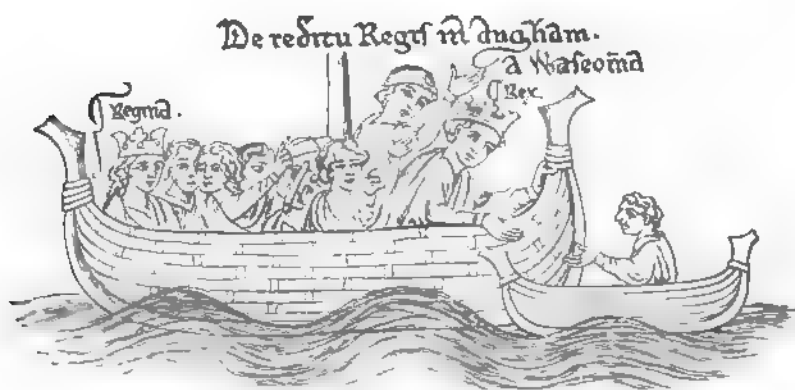 De reditu Regis in Angliam.
a Wasconia
Rex.
Regina.